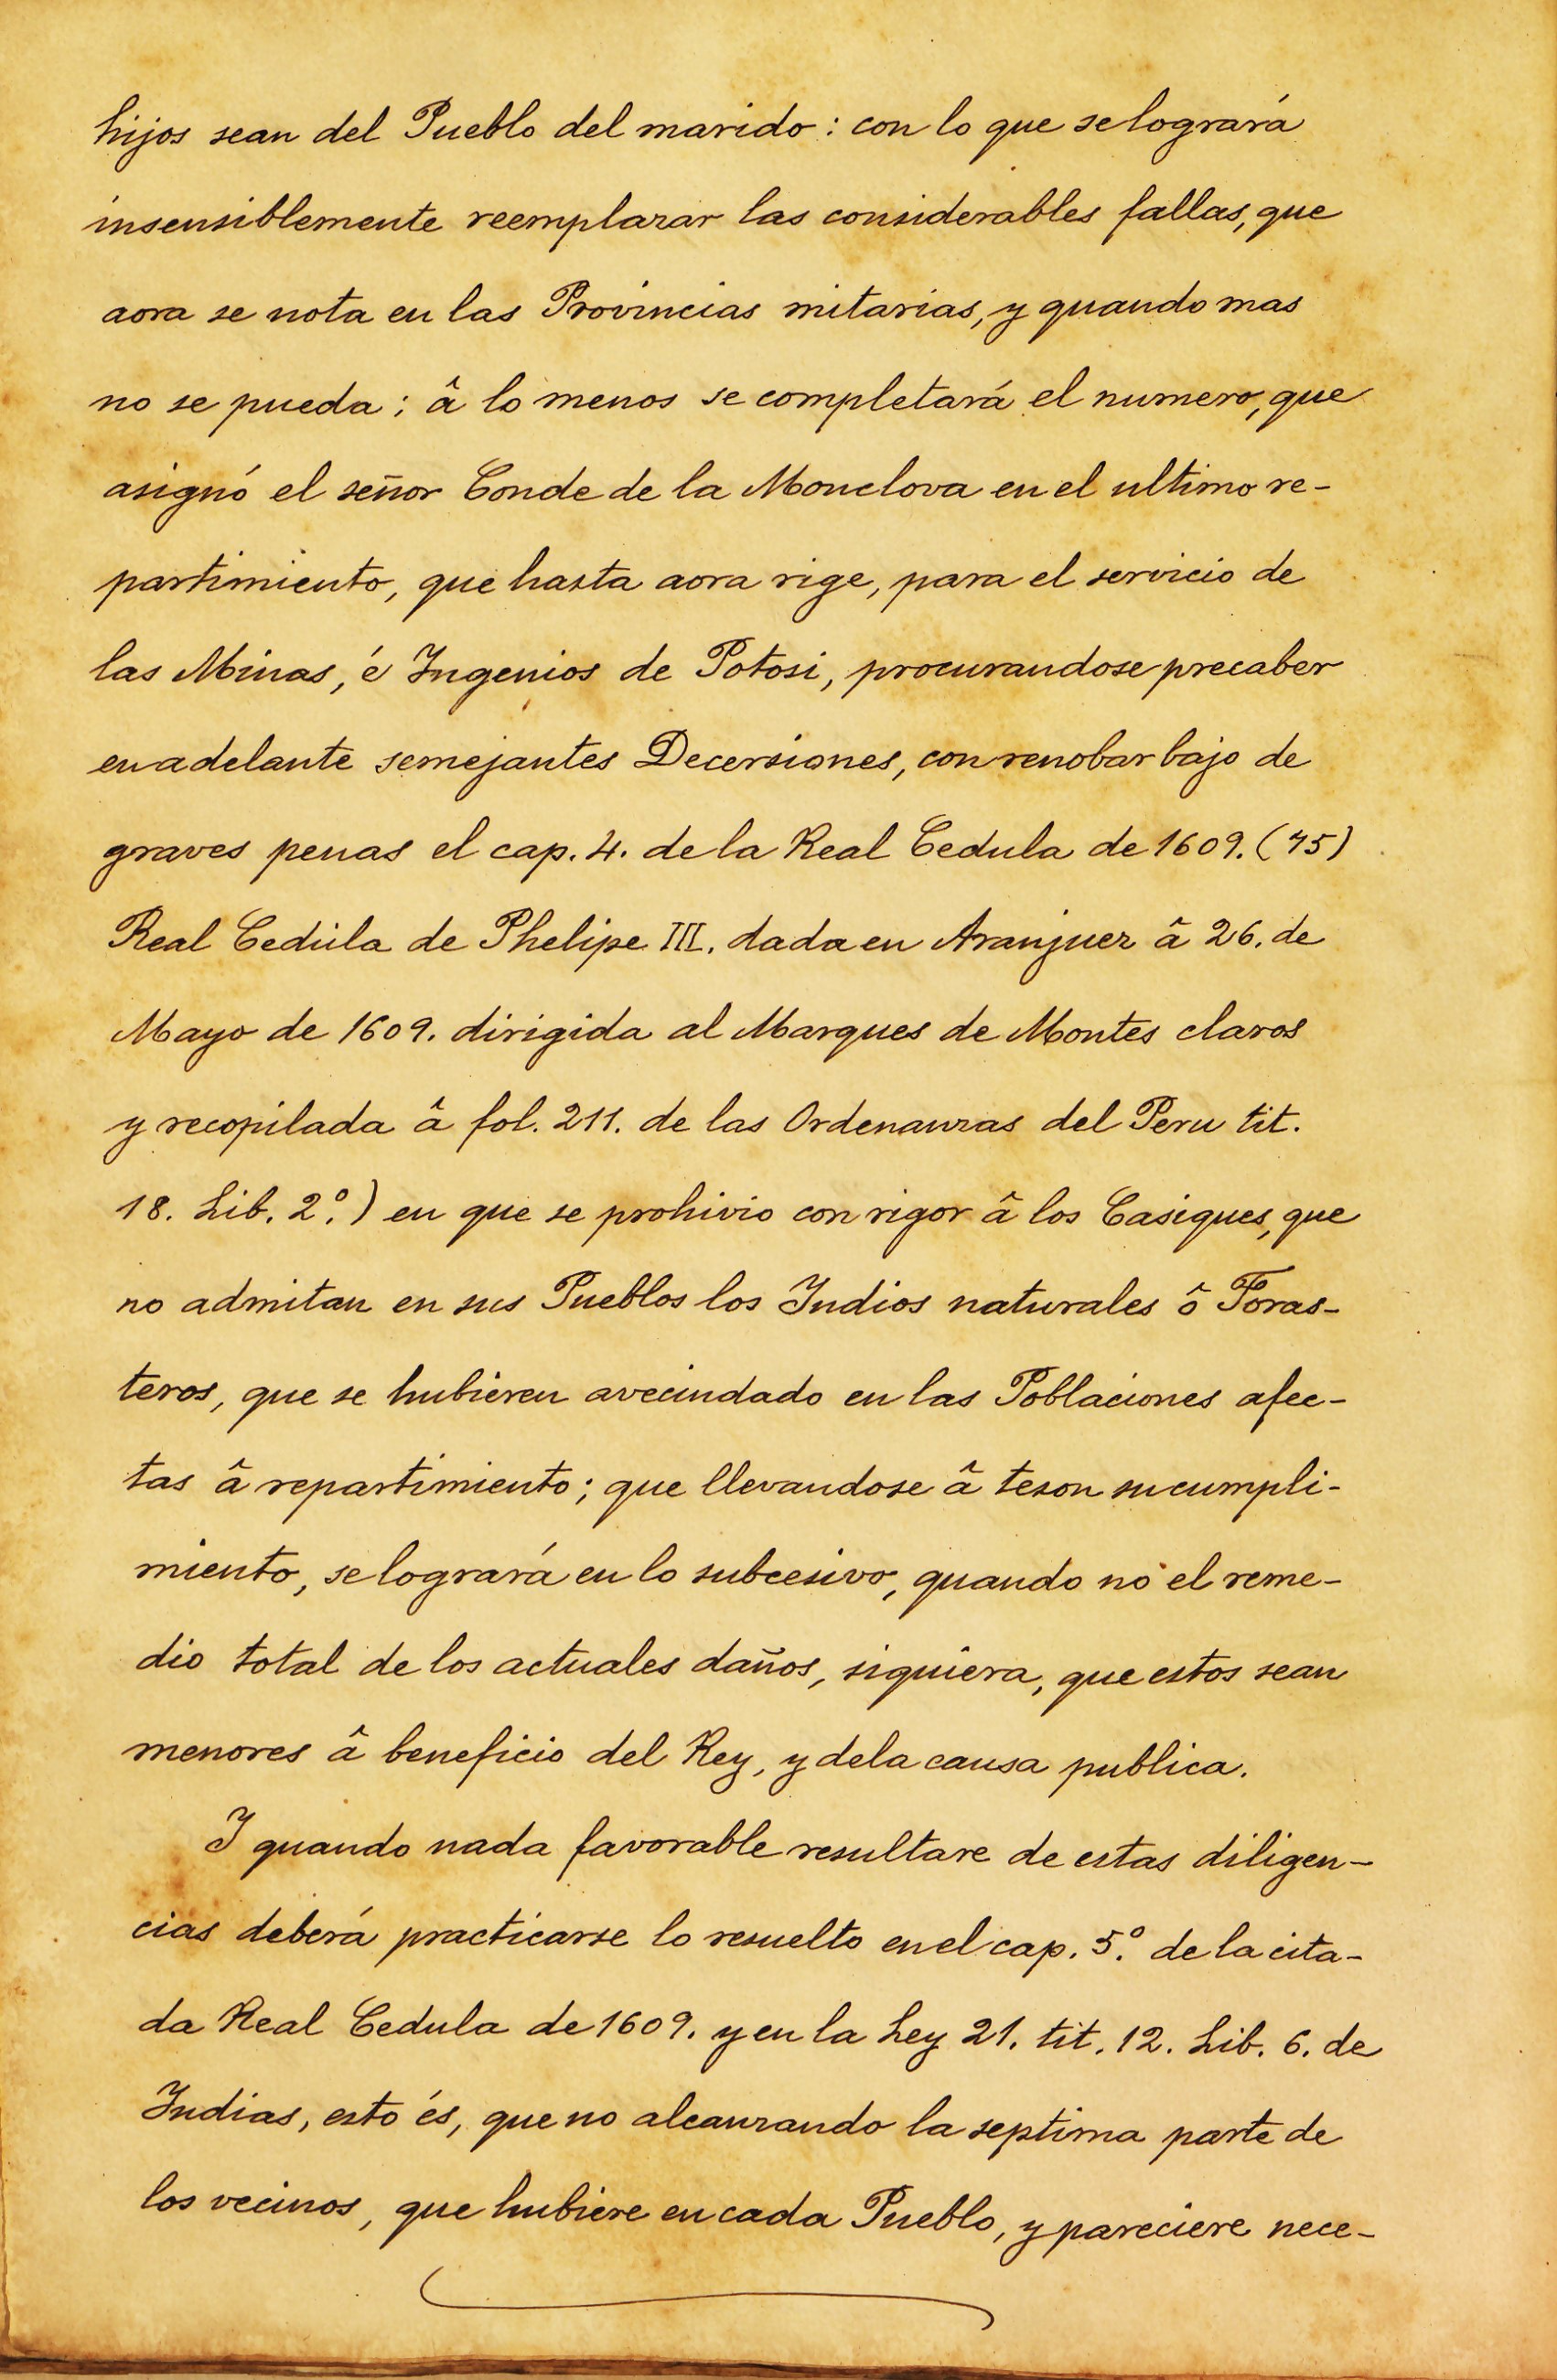 hijos sean del Pueblo del marido: con lo que se logrará
insensiblemente reemplazar las considerables fallas, que
aora se nota en las Provincias mitarias, y quando mas
no se pueda; â lo menos se completará el numero, que
asignó el señor Conde de la Monclova en el ultimo re-
partimiento, que hasta aora rige, para el servicio de
las Minas, é Ingenios de Potosi, procurandose precaber
en adelante semejantes Decersiones, con renobar bajo de
graves penas el cap. 4. de la Real Cedula de 1609. (75)
Real Cedula de Phelipe III. dada en Aranjuez â 26. de
Mayo de 1609. dirigida al Marques de Montes claros
y recopilada â fol. 211. de las Ordenanzas del Peru tit.
18. Lib. 2º.) en que se prohivio con rigor â los Casiques, que
no admitan en sus Pueblos los Indios naturales ô Foras-
teros, que se hubieren avecindado en las Poblaciones afec-
tas â repartimiento; que llevandose â teson su cumpli-
miento, se logrará en lo subcesivo, quando no el reme-
dio total de los actuales daños, siquiera, que estos sean
menores â beneficio del Rey, y de la causa publica.
I quando nada favorable resultare de estas diligen-
cias deberá practicarse lo resuelto en el cap. 5º. de la cita-
da Real Cedula de 1609. y en la Ley 21. tit. 12. Lib. 6. de
Indias, esto és, que no alcanzando la septima parte de
los vecinos, que hubiere en cada Pueblo, y pareciere nece-